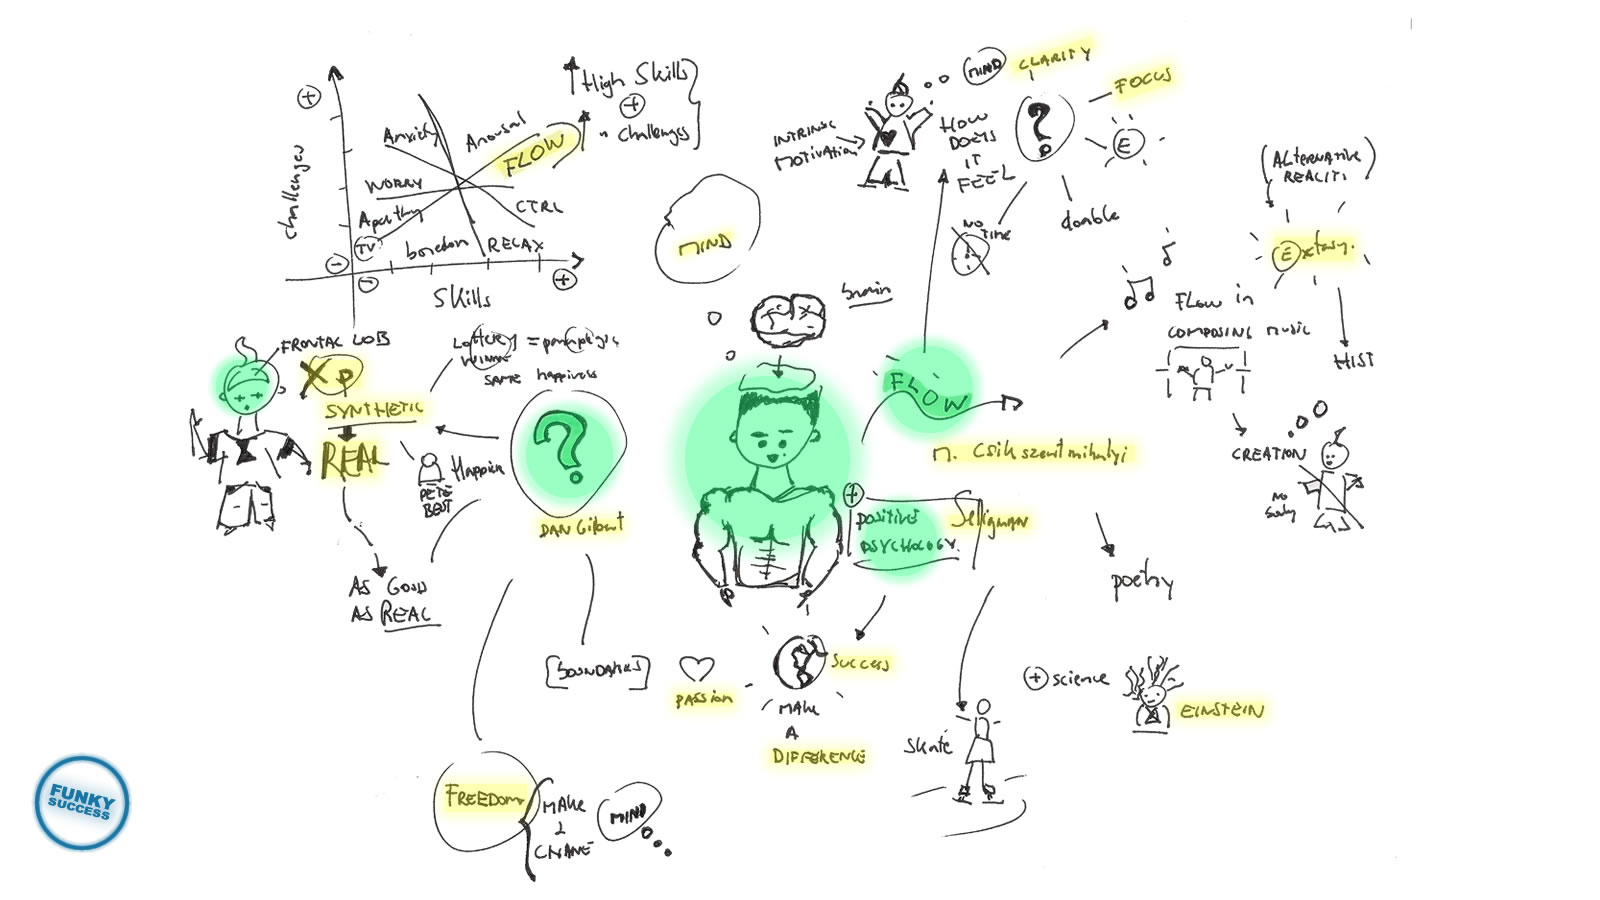 High Skills
+
challenges
+
Anxiety
Arousal
FLOW
WORRY
Apathy
CTRL
TV
boredom
RELAX
challenges
-
-
+
Skills
MIND
CLARITY
FOCUS
INTRINSIC
MOTIVATION
HOW
DOES
IT
FEEL
?
E
NO
TIME
doable
(ALTERNATIVE
REALITI)
Extasy.
HIST
MIND
brain
FLOW in
COMPOSING music
CREATION
NO
body
FRONTAL LOB
XP
SYNTHETIC
REAL
Lottery = paraplegic
WINNER
SAME happiness
Happier
PETE
BEST
AS GOOD
AS REAL
?
DAN Gilbert
FLOW
M. Csikszentmihalyi
+
POSITIVE
PSYCHOLOGY.
Seligman
poetry
[BOUNDARIES]
PASSION
SUCCESS
MAKE
A
DIFFERENCE
skate
+ science
EINSTEIN
FREEDOM
MAKE
2
CHANE
MIND
FUNKY
SUCCESS